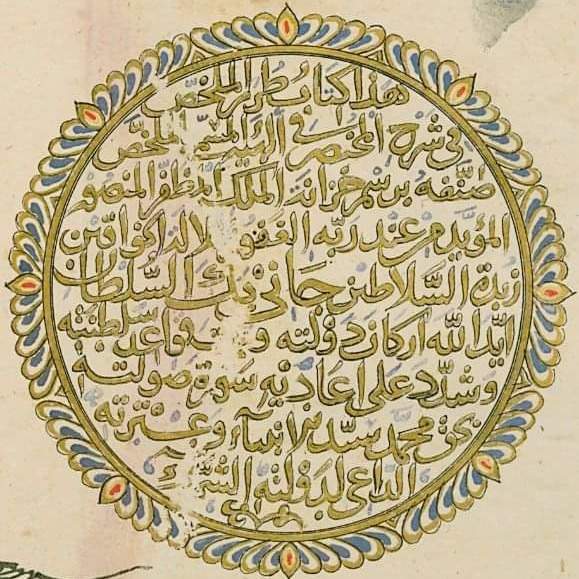 هذا كتاب طراز الملخص
في شرح المختصر في الهيئة المسمى الملخص
صنفه برسم خزانة الملك المظفر المنصور
المؤيد من عند ربه الغفور جلال الخواقين
زبدة السلاطين جاني بك السلطان
ايد الله اركان دولته و قواعد سلطنته
وشدد على اعاديه سورة صولته
بحق محمد سيد انبيائه وعترته
الداعي لدولته